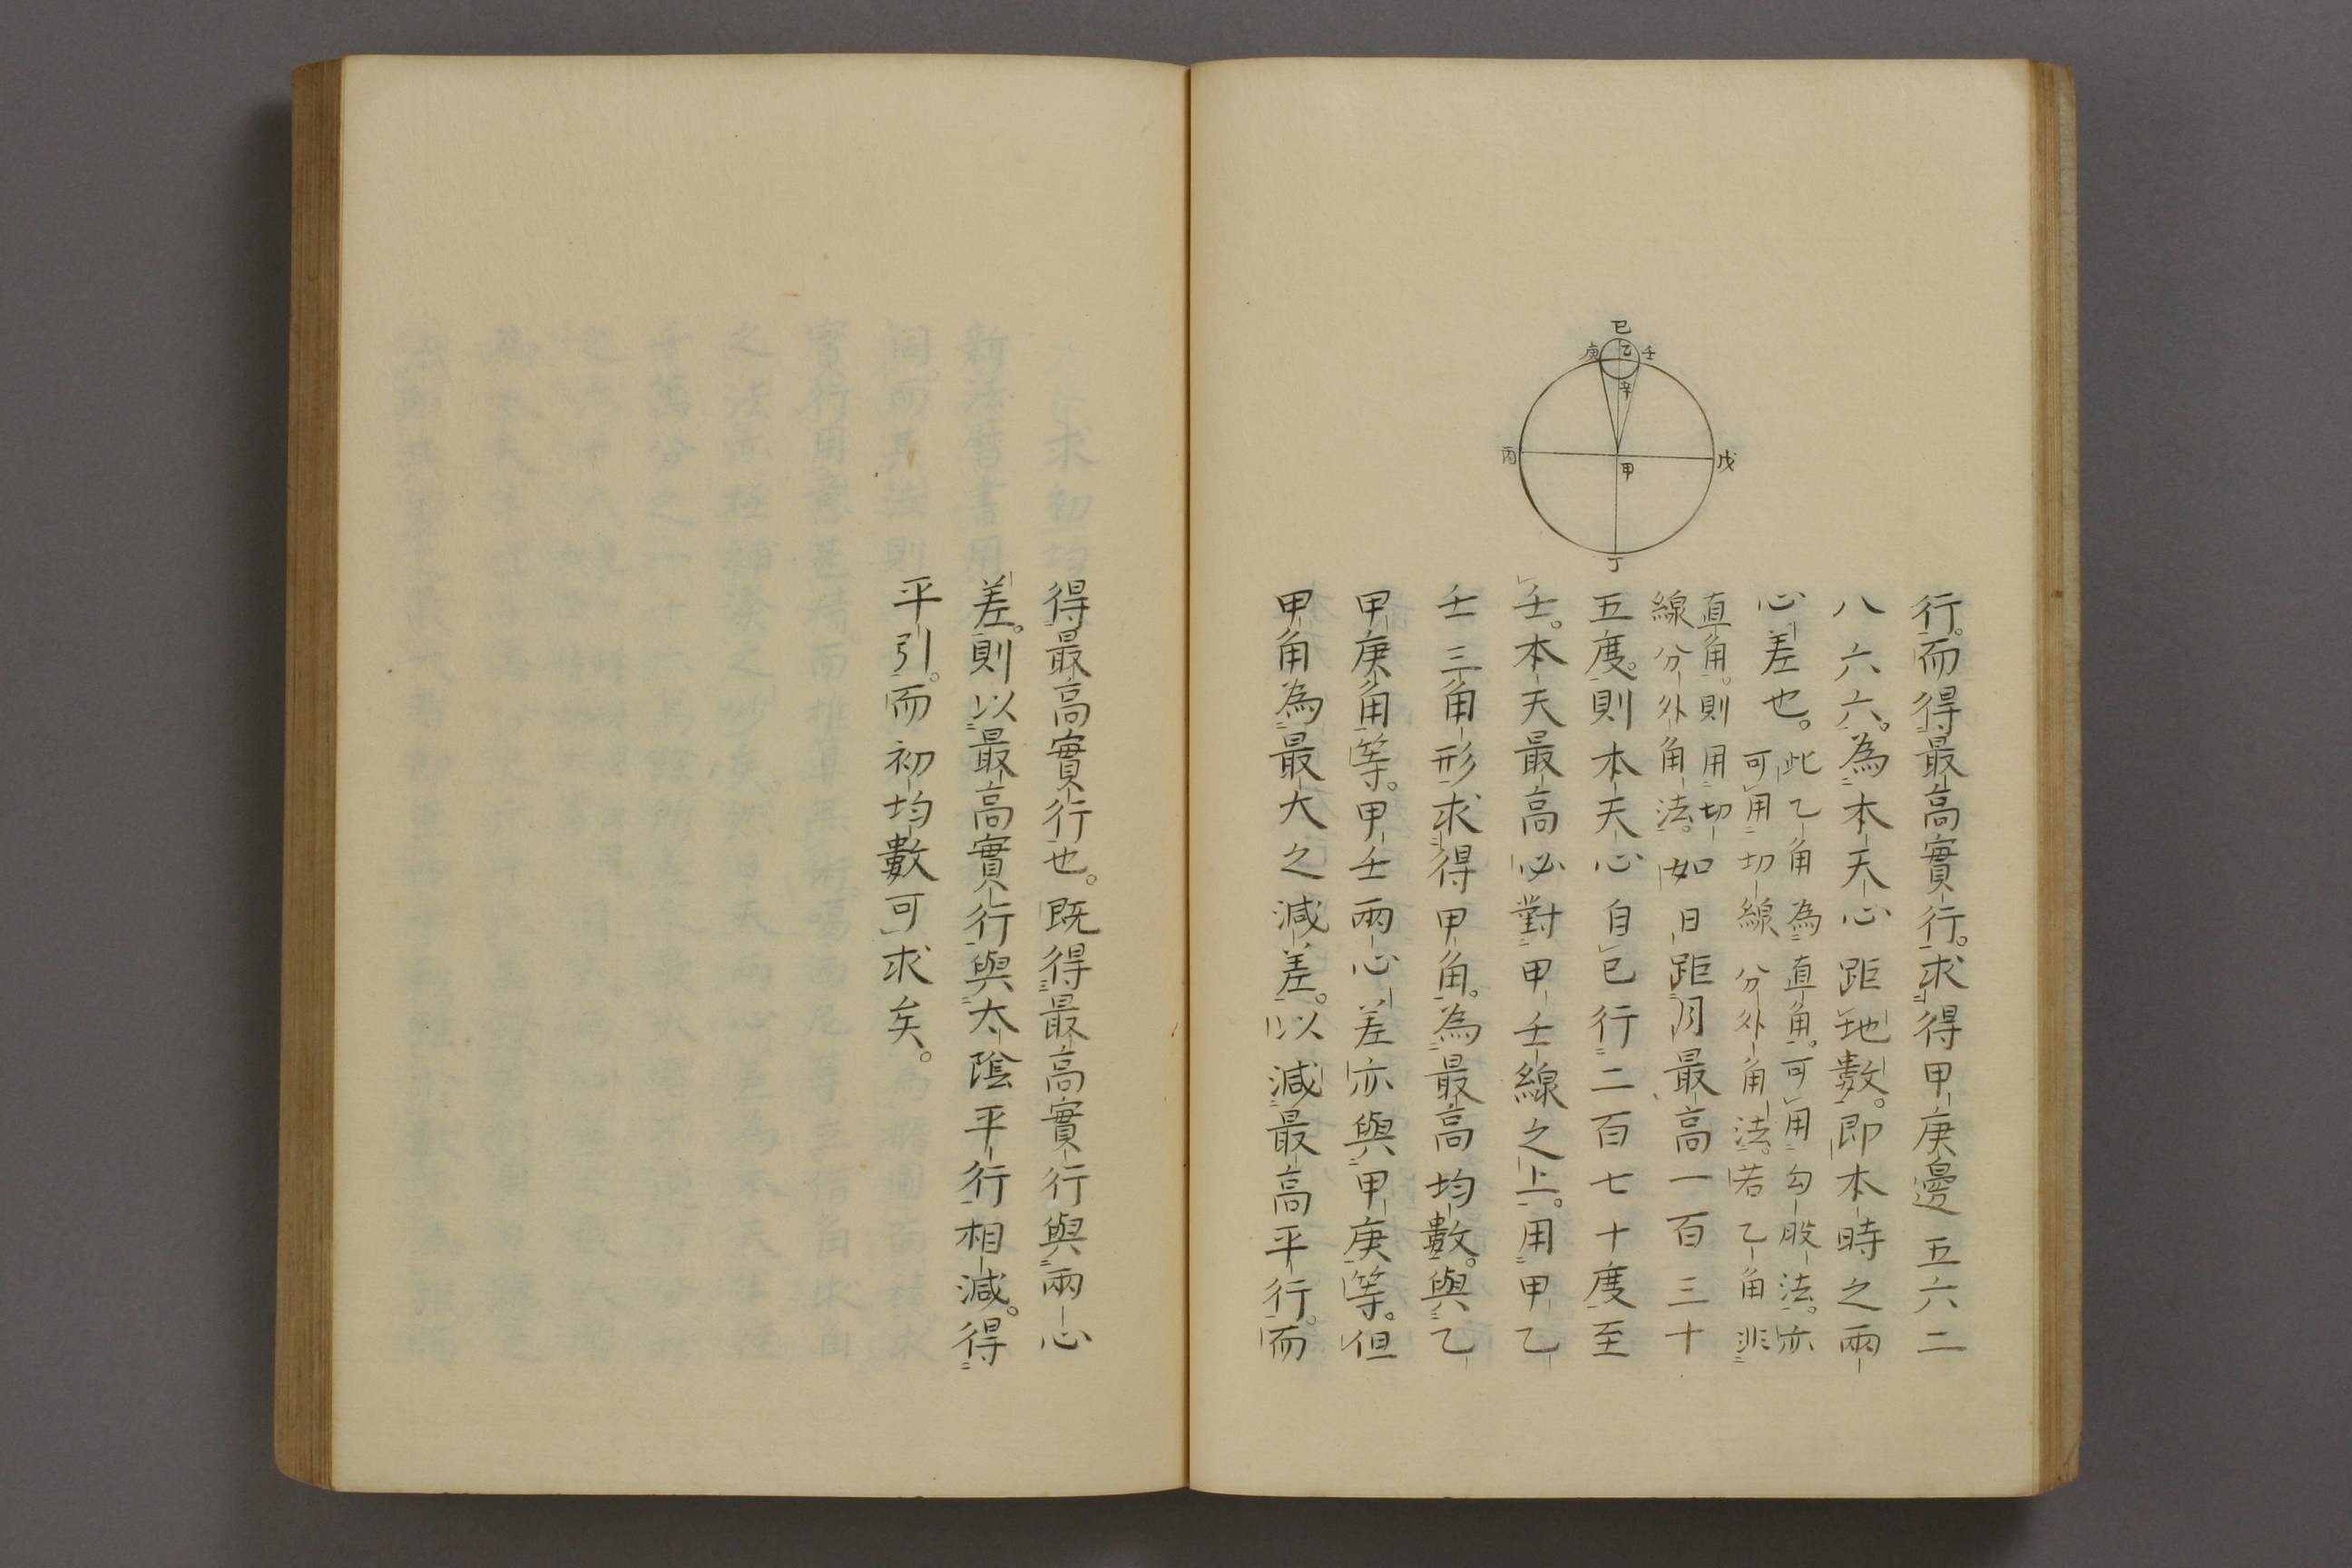 巳
庚
乙
壬
辛
丙
甲
戊
丁
行。而得最高實行。求得甲庚邊五六二
八六六。為本天心距地數。即本時之兩
心差也。
此乙角為直角。可用勾股法。亦
可用切線分外角法。若乙角非
直角。則用切
線分外角法。
如日距月最高一百三十
五度。則本天心自巳行二百七十度至
壬。本天最高必對甲壬線之上。用甲乙
壬三角形求得甲角。為最高均數。與乙
甲庚角等。甲壬兩心差亦與甲庚等。但
甲角為最大之減差。以減最高平行。而
得最高實行也。既得最高實行與兩心
差。則以最高實行與太陰平行相減。得
平引。而初均數可求矣。